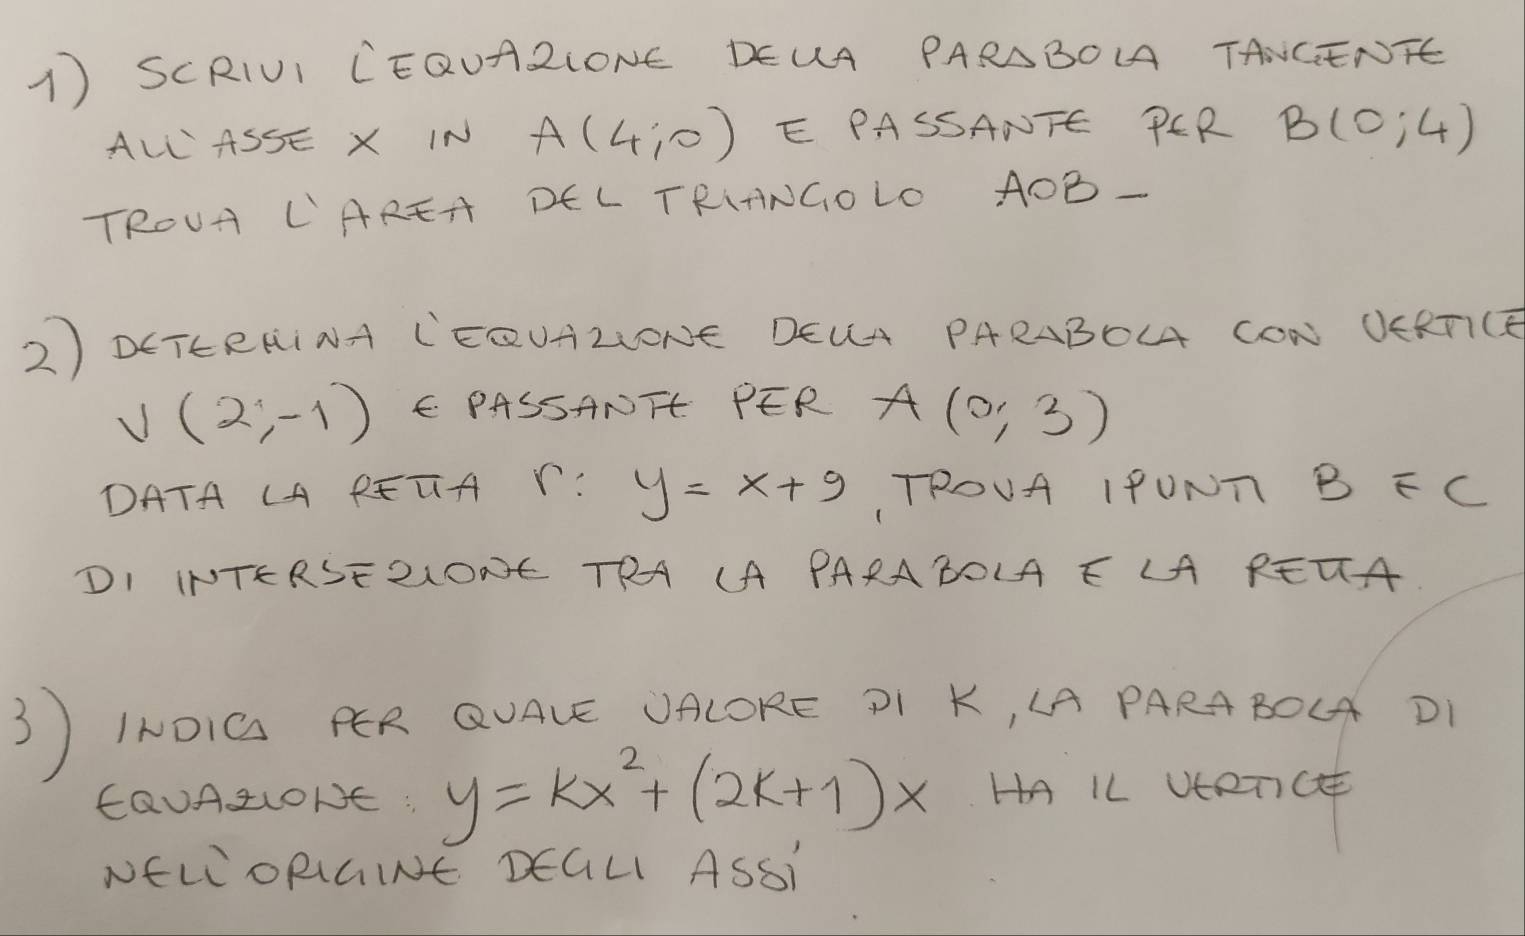 1) SCRIVI L'EQUAZIONE DELLA PARABOLA TANGENTE
ALL'ASSE X IN A(4;0) E PASSANTE PER B(0;4)
TROVA L'AREA DEL TRIANGOLO AOB -
2) DETERMINA L'EQUAZIONE DELLA PARABOLA CON VERTICE
V(2;-1) E PASSANTE PER A(0;3)
DATA LA RETTA r: y=x+9, TROVA I PUNTI B E C
DI INTERSEZIONE TRA LA PARABOLA E LA RETTA.
3) INDICA PER QUALE VALORE DI K, LA PARABOLA DI
EQUAZIONE: y=kx²+(2k+1)x HA IL VERTICE
NELL'ORIGINE DEGLI ASSI